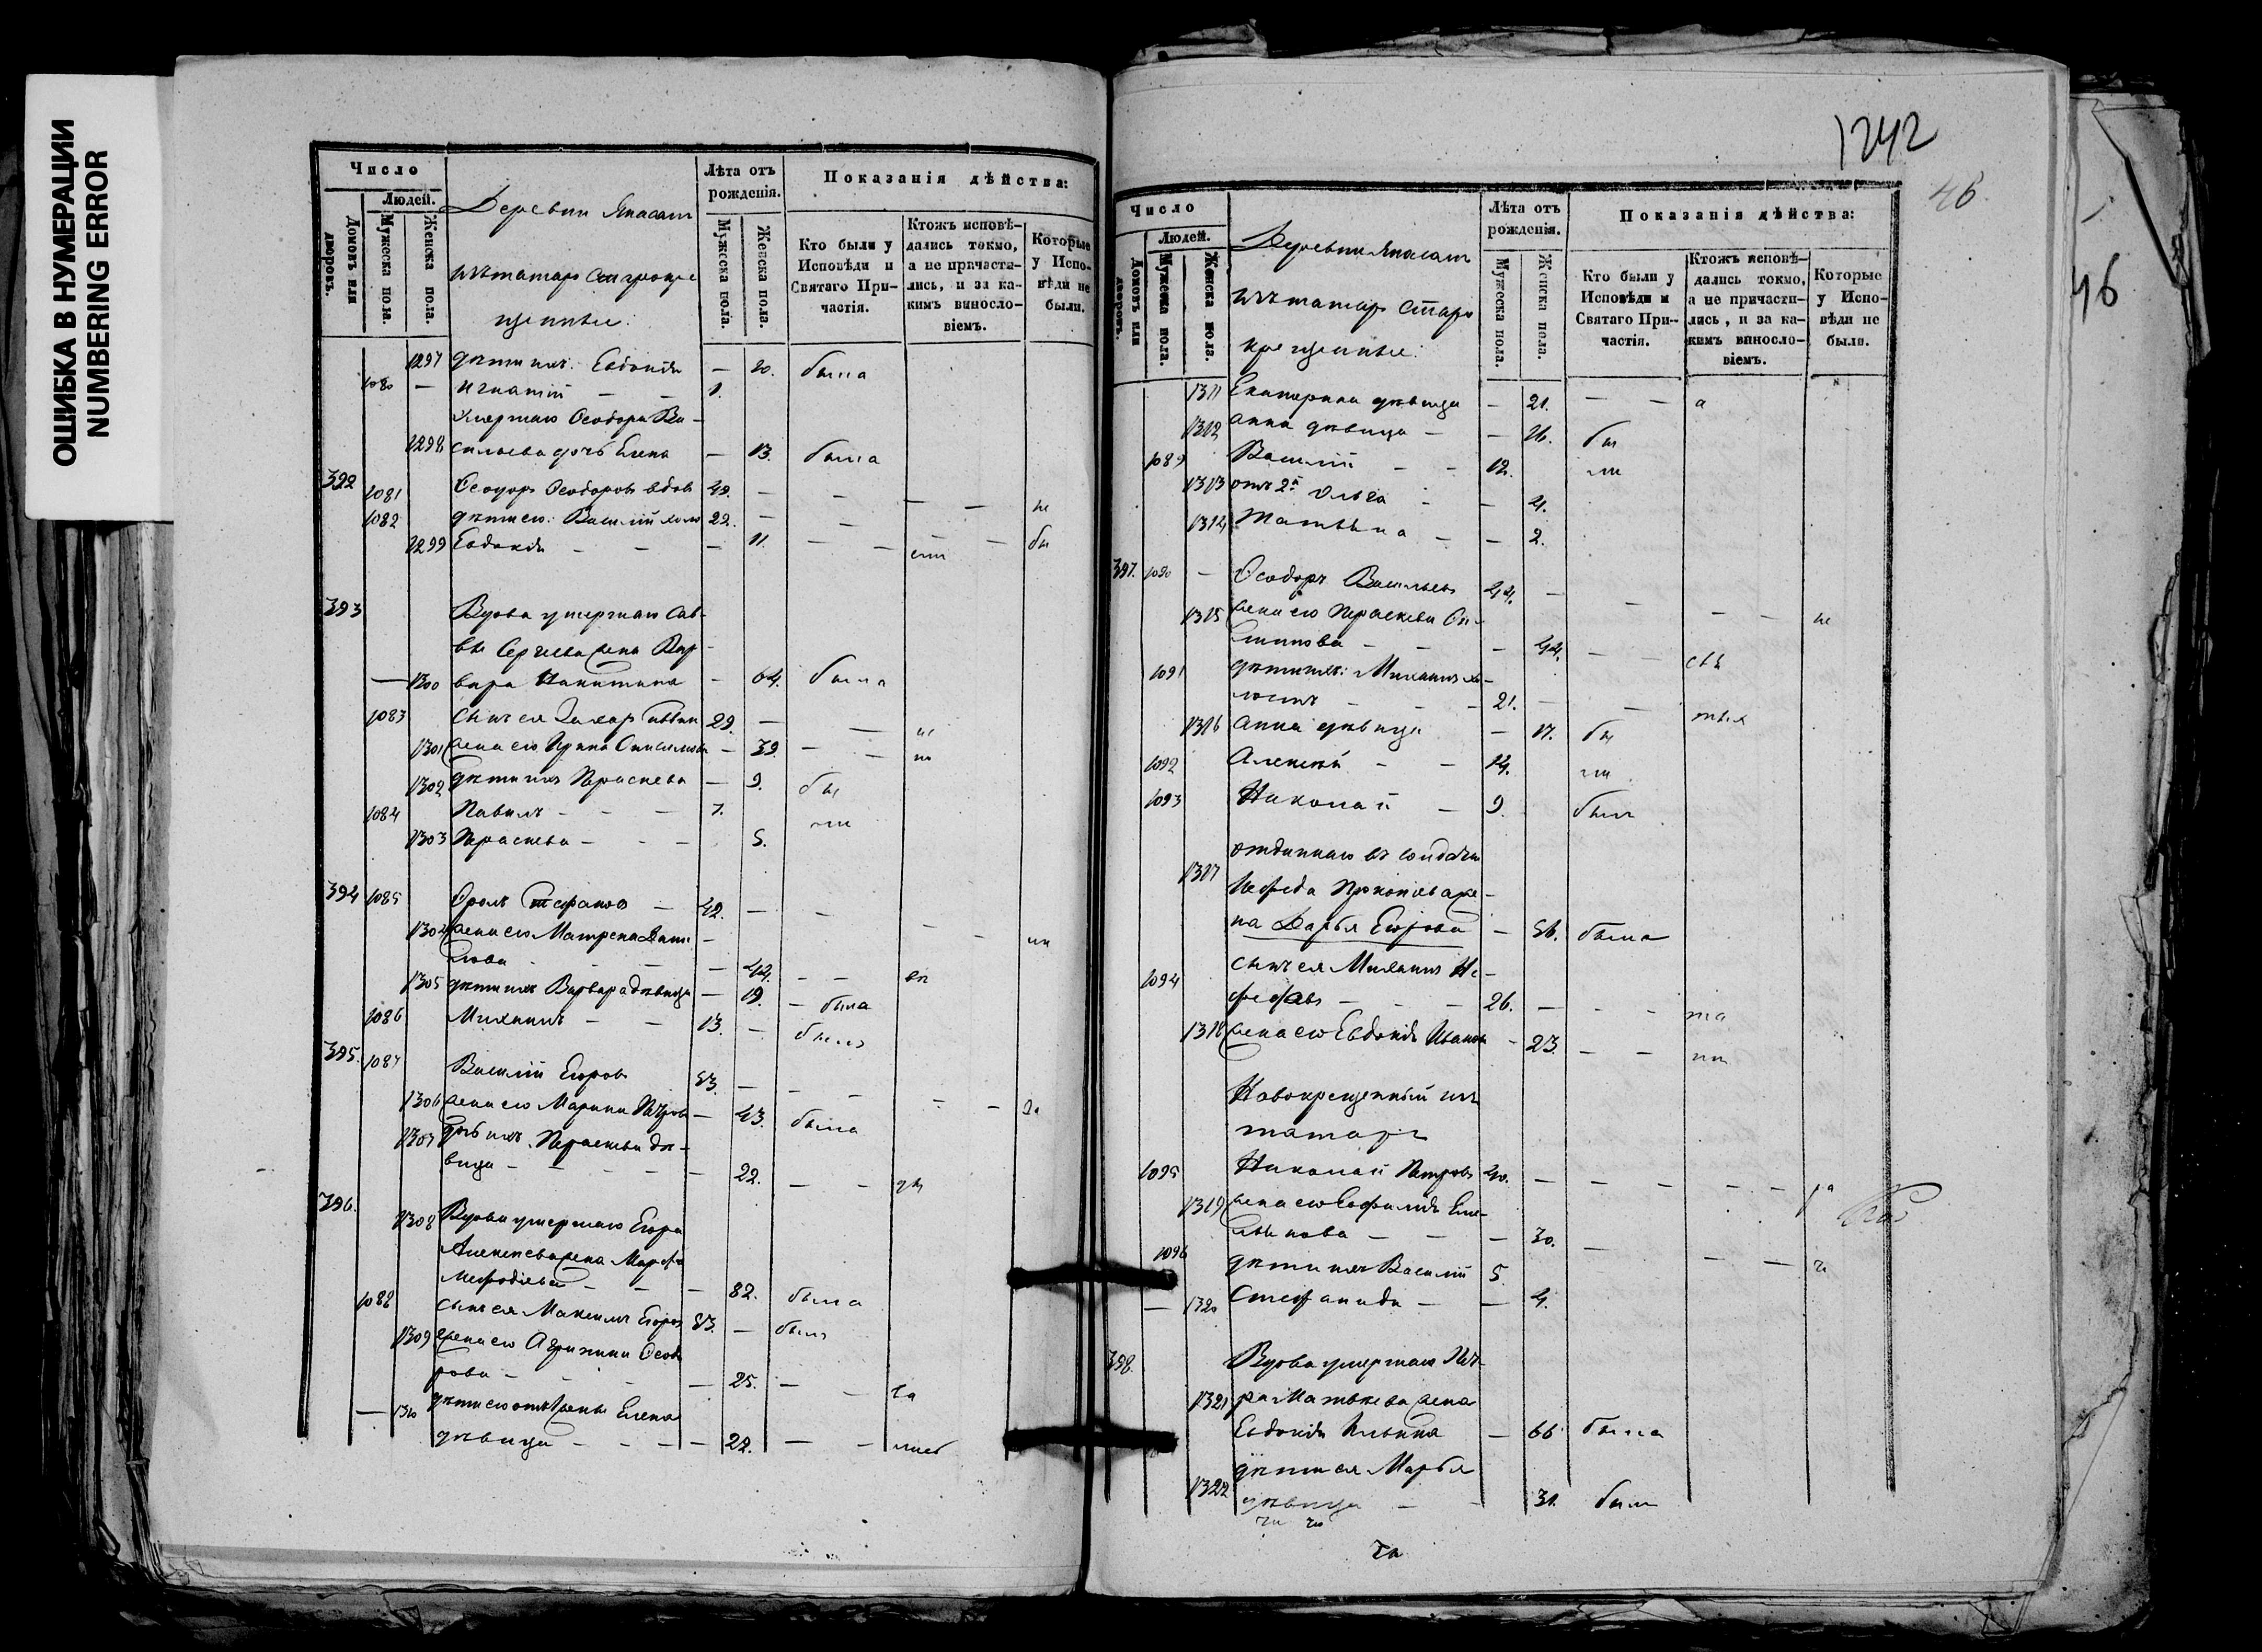 ОШИБКА В НУМЕРАЦИИ
NUMBERING ERROR
Число
Людей.
Домовъ или дворовъ.
Мужеска пола.
Женска пола.
Деревни
изъ татаръ старокре-
щенные:
Лѣта отъ рожденія.
Мужеска пола.
Женска пола.
Показанія дѣйства:
Кто были у Исповѣди и Святаго При-частія.
Ктожъ исповѣ-дались токмо, а не причасти-лись, и за ка-кимъ винословіемъ.
Которые у Испо-вѣди не были.
1297 дѣти ихъ: Евдокія — 10. была
1080 — Игнатій — — 1.
Умершаго Ѳеодора Ва-
1298 сильева дочь Елена — 13. была
392 1081 Ѳеодоръ Ѳеодоровъ вдовъ 49. — — — не
1082 дѣти его: Василій холо 22. — — — —
1299 Евдокія — — — 11. — — — бы
393 Вдова умершаго Сав-
вы Сергѣева жена Вар-
— 1300 вара Никитина — 64. была
1083 сынъ ея Захаръ Саввин 29. — —
1301 жена его Ирина — 39. — —
1302 дѣти ихъ Параскева — 9. бы
1084 Павелъ — — — 7. ли
1303 Параскева — — — 5.
394 1085 Фролъ Стефановъ — 42. — — —
1304 жена его Матрена Дани —
лова — — — 42. — —
1305 дѣти ихъ Варвара дѣвица — 19. — была
1086 Михаилъ — — 13. — былъ
395. 1087 Василій Егоровъ 53. — — — —
1306 жена его Марина Петров — 43. была
1307 дочь ихъ Параскева дѣ-
вица — — — — 22. — —
396. 1308 Вдова умершаго Егора
Алексѣева жена Марфа
Меѳодіева — — — 82. была
1088 сынъ ея Максимъ Егоров 53. — былъ
1309 жена его Агрипина Ѳеодо
рова — — — — 25. — —
— 1310 Елена
дѣвица — — — — 22. — —
1242
46
46
Число
Людей.
Домовъ или дворовъ.
Мужеска пола.
Женска пола.
Деревни
изъ татаръ старо
крещенные:
Лѣта отъ рожденія.
Мужеска пола.
Женска пола.
Показанія дѣйства:
Кто были у Исповѣди и Святаго При-частія.
Ктожъ исповѣ-дались токмо, а не причасти-лись, и за ка-кимъ винословіемъ.
Которые у Испо-вѣди не были.
1311 Екатерина дѣвица — 21. — —
1312 Анна дѣвица — — 16. бы
1089 Василій — — 12. ли
1313 отъ 2й Ольга — — 4.
1314 Татьяна — — 2.
397. 1090 — Ѳеодоръ Васильевъ 44. — — — не
1315 жена его Параскева
— — — 44. — —
1091 дѣти ихъ: Михаилъ хо-
лостъ — — — 21. — —
1316 Анна дѣвица — 17. бы
1092 Алексѣй — — 14. ли
1093 Николай — 9. былъ
отданнаго въ солдаты
1317 Нефеда Прокопьева же-
на Дарья Егорова — 56. была
1094 сынъ ея Михаилъ Не-
федовъ — — — 26. — — —
1318 жена его Евдокія Иванов — 23. — —
Новокрещенный изъ
татаръ
1095 Николай Петровъ 40. — — — — —
1319 жена его Еме-
льянова — — — 30. — — —
1096 дѣти ихъ Василій 5.
— 1320 Стефанида — — 4.
398. Вдова умершаго Пет-
1321 ра Матвѣева жена
Евдокія Ильина — 66 была
дѣти ея Марья
1322 дѣвица — — 31. была